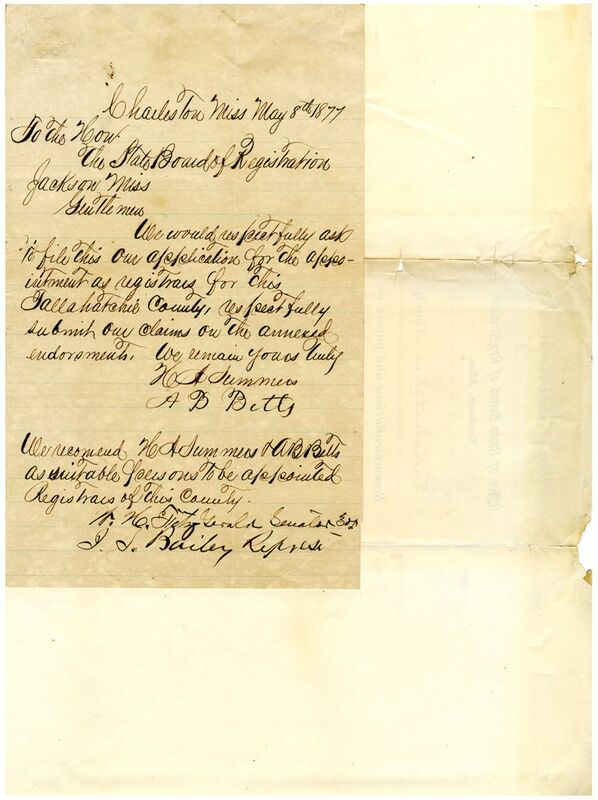 Charleston Miss May 8th 1877
To the Hon
The State Board of Registration
Jackson Miss
Gentlemen
We would respectfully ask
to file this our application for the appo-
intment as registrars for this
Tallahatchie County, respectfully
submit our claims on the annexed
endorsments. We remain yours truly
H A Summers
A B Betts
We recomend H A Summers & A B Betts
as suitable persons to be appointed
Registrars of this County.
H. Fitz-Gerald Senator
J. S. Bailey Represt
Office of State Board of Registr